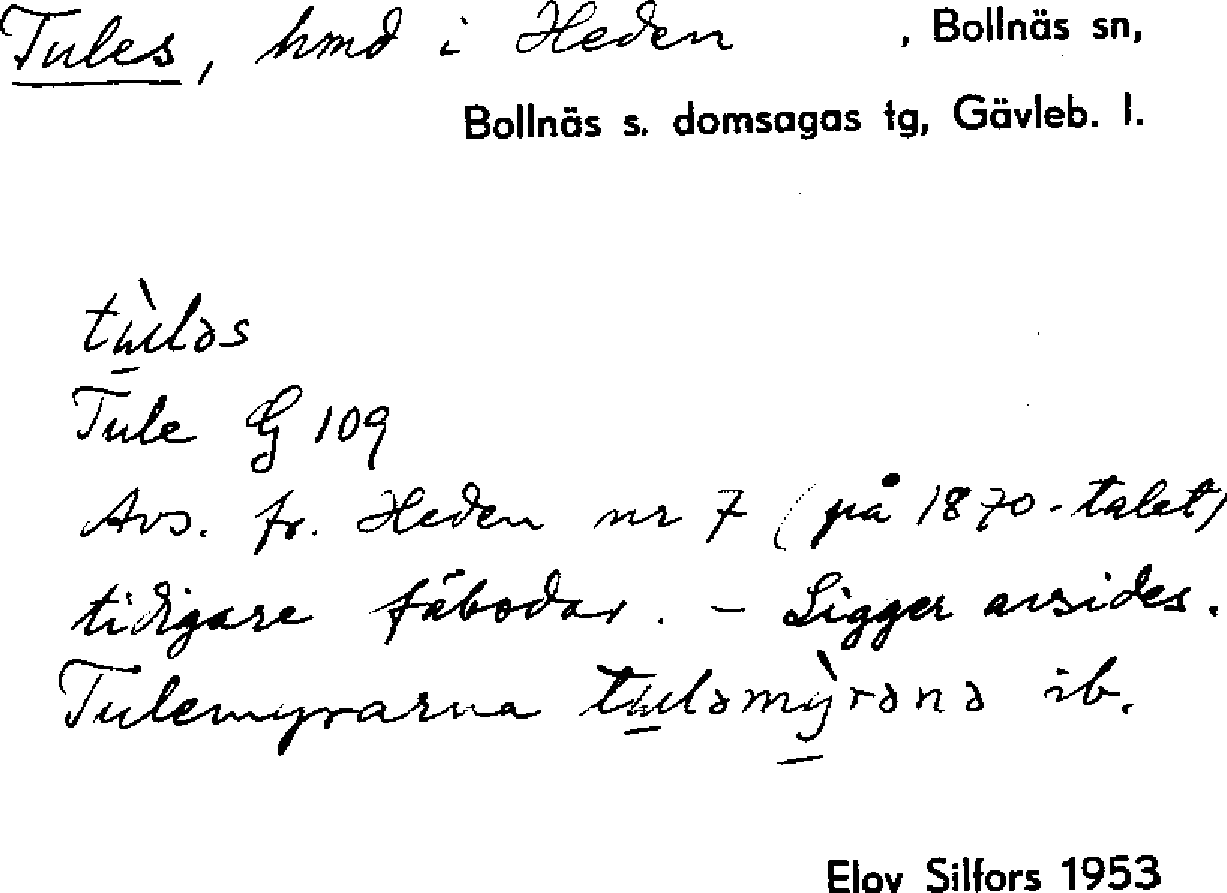 Tules, hmd i Heden , Bollnäs sn,
Bollnäs s. domsagas tg, Gävleb. l.
tùləs
Tule G 109
Avs. fr. Heden nr 7 (på 1870-talet)
tidigare fäbodar. – Ligger avsides.
Tulemyrarna tuləmỳrənə ib.
Elov Silfors 1953